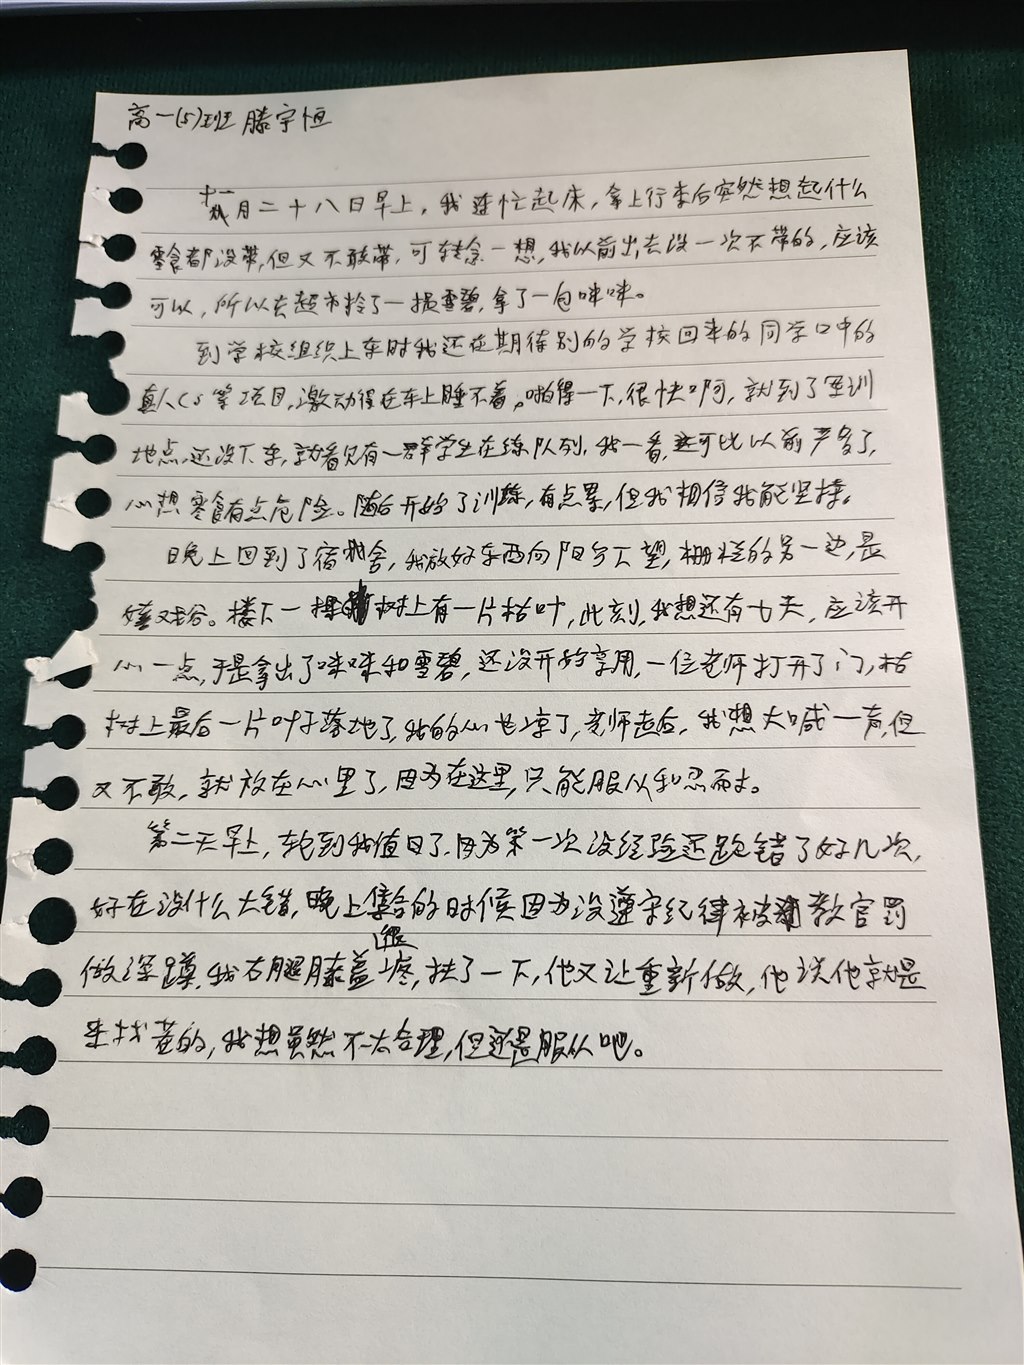 高一(5)班 滕宇恒
十一月二十八日早上，我连忙起床，拿上行李后突然想起什么
零食都没带，但又不敢带，可转念一想，我以前出去没一次不带的，应该
可以，所以去超市拎了一提雪碧，拿了一包咪咪。
到学校组织上车时我还在期待别的学校回来的同学口中的
真人CS等项目，激动得在车上睡不着。啪得一下，很快啊，就到了军训
地点，还没下车，就看见有一群学生在练队列，我一看，这可比以前严多了，
心想零食有点危险。随后开始了训练，有点累，但我相信我能坚持。
晚上回到了宿舍，我放好东西向阳台下望，栅栏的另一边，是
嬉戏谷。楼下一棵树上有一片枯叶，此刻，我想还有七天，应该开
心一点，于是拿出了咪咪和雪碧，还没开始享用，一位老师打开了门，枯
树上最后一片叶子落地了，我的心也凉了，老师走后，我想大喊一声，但
又不敢，就放在心里了，因为在这里，只能服从和忍耐。
第二天早上，轮到我值日了，因为第一次没经验还跑错了好几次，
好在没什么大错，晚上集合的时候因为没遵守纪律被教官罚
做深蹲，我右腿膝盖很疼，扶了一下，他又让重新做，他说他就是
来找茬的，我想虽然不太合理，但还是服从吧。